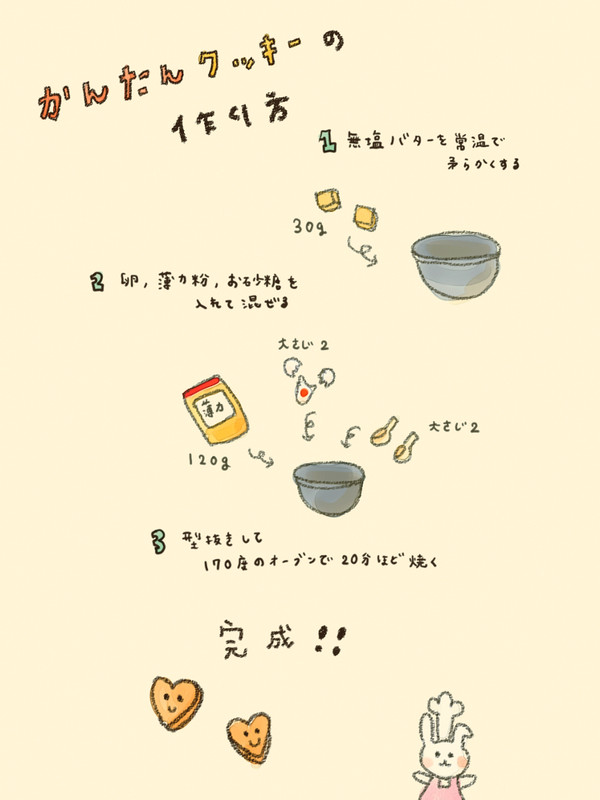 かんたんクッキーの
作り方
1 無塩バターを常温で
柔らかくする
30g
2 卵,薄力粉,お砂糖を
入れて混ぜる
大さじ2
薄力
大さじ2
120g
3 型抜きして
170度のオーブンで20分ほど焼く
完成!!